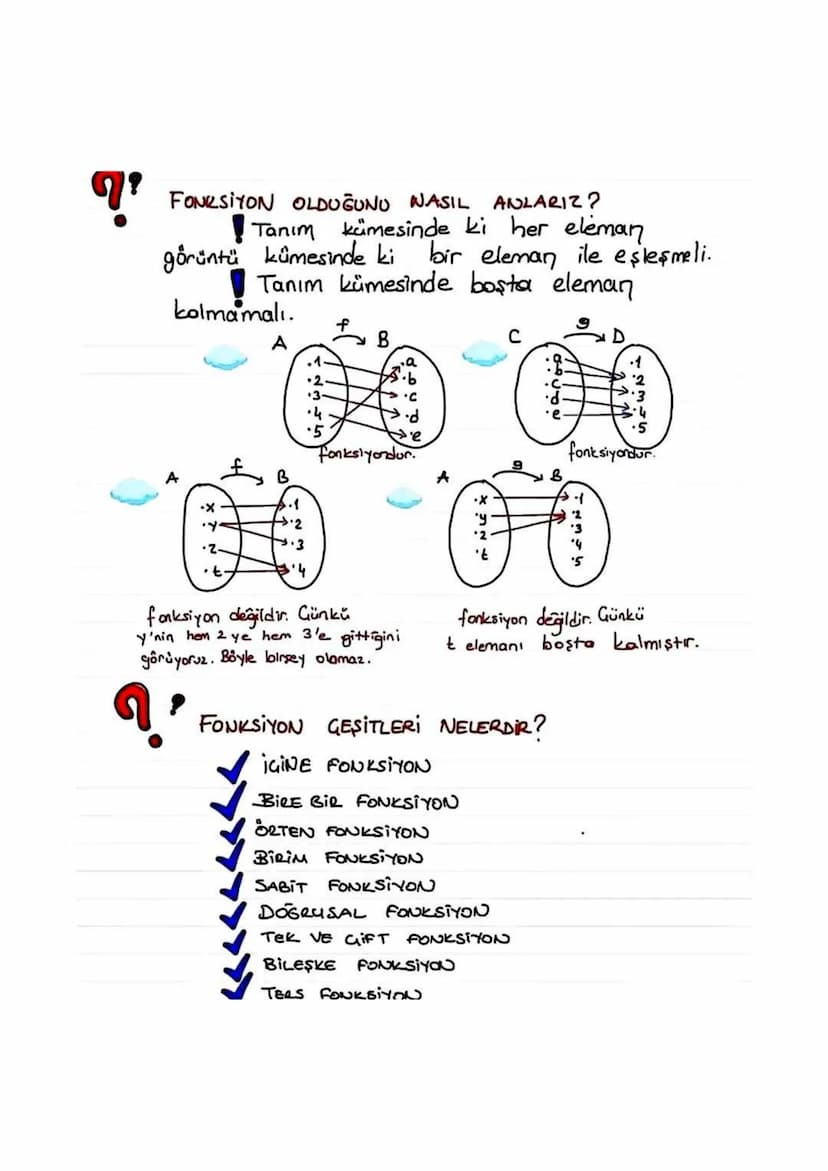 FONKSİYON OLDUĞUNU NASIL ANLARIZ?
! Tanım kümesinde ki her eleman
görüntü kümesinde ki bir eleman ile eşleşmeli.
! Tanım kümesinde boşta eleman
kalmamalı.
f
A B
.1 .a
.2 .b
.3 .c
.4 .d
.5 .e
fonksiyondur.
g
C D
.a .1
.b .2
.c .3
.d .4
.e .5
fonksiyondur.
f
A B
.x .1
.y .2
.z .3
.t .4
fonksiyon değildir. Çünkü
y'nin hem 2 ye hem 3'e gittiğini
görüyoruz. Böyle birşey olamaz.
g
A B
.x .1
.y .2
.z .3
.t .4
.5
fonksiyon değildir. Çünkü
t elemanı boşta kalmıştır.
FONKSİYON ÇEŞİTLERİ NELERDİR?
İÇİNE FONKSİYON
BİRE BİR FONKSİYON
ÖRTEN FONKSİYON
BİRİM FONKSİYON
SABİT FONKSİYON
DOĞRUSAL FONKSİYON
TEK VE ÇİFT FONKSİYON
BİLEŞKE FONKSİYON
TERS FONKSİYON